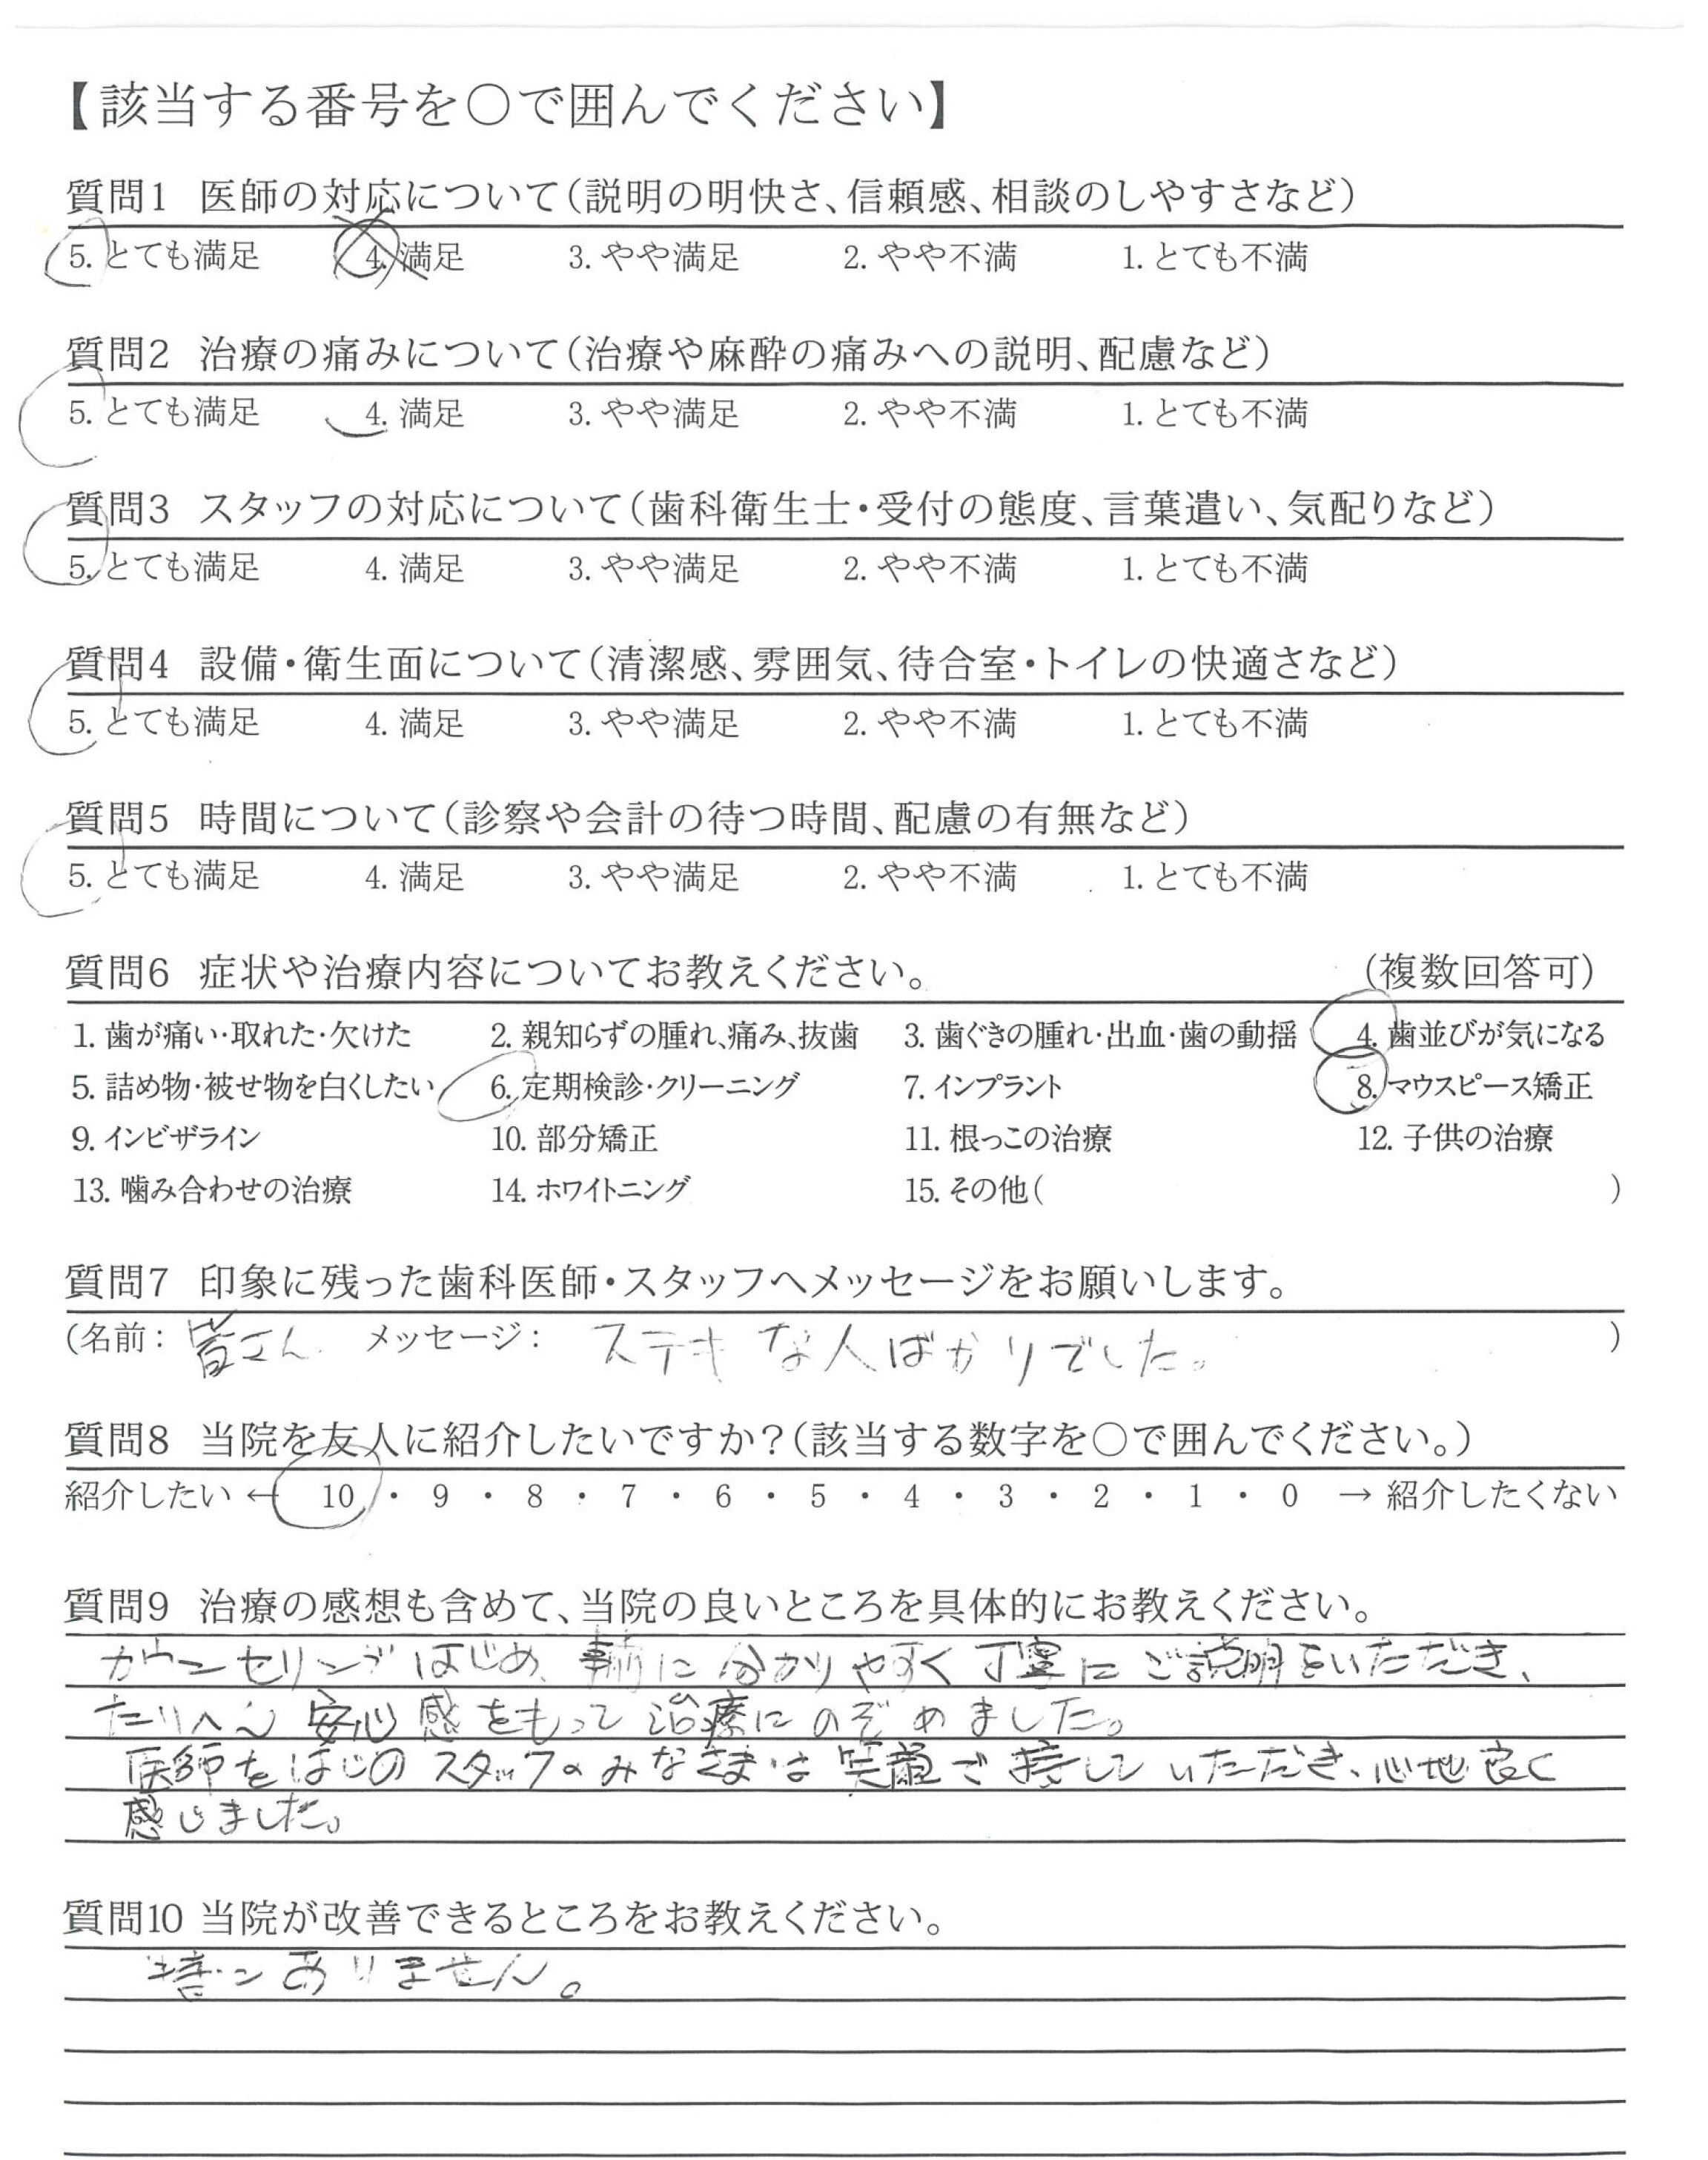 【該当する番号を○で囲んでください】
質問1 医師の対応について(説明の明快さ、信頼感、相談のしやすさなど)
5. とても満足 4. 満足 3. やや満足 2. やや不満 1. とても不満
質問2 治療の痛みについて(治療や麻酔の痛みへの説明、配慮など)
5. とても満足 4. 満足 3. やや満足 2. やや不満 1. とても不満
質問3 スタッフの対応について(歯科衛生士・受付の態度、言葉遣い、気配りなど)
5. とても満足 4. 満足 3. やや満足 2. やや不満 1. とても不満
質問4 設備・衛生面について(清潔感、雰囲気、待合室・トイレの快適さなど)
5. とても満足 4. 満足 3. やや満足 2. やや不満 1. とても不満
質問5 時間について(診察や会計の待つ時間、配慮の有無など)
5. とても満足 4. 満足 3. やや満足 2. やや不満 1. とても不満
質問6 症状や治療内容についてお教えください。 (複数回答可)
1. 歯が痛い・取れた・欠けた 2. 親知らずの腫れ、痛み、抜歯 3. 歯ぐきの腫れ・出血・歯の動揺 4. 歯並びが気になる
5. 詰め物・被せ物を白くしたい 6. 定期検診・クリーニング 7. インプラント 8. マウスピース矯正
9. インビザライン 10. 部分矯正 11. 根っこの治療 12. 子供の治療
13. 噛み合わせの治療 14. ホワイトニング 15. その他( )
質問7 印象に残った歯科医師・スタッフへメッセージをお願いします。
(名前: 皆さん メッセージ: ステキな人ばかりでした。 )
質問8 当院を友人に紹介したいですか?(該当する数字を○で囲んでください。)
紹介したい ← 10 ・ 9 ・ 8 ・ 7 ・ 6 ・ 5 ・ 4 ・ 3 ・ 2 ・ 1 ・ 0 → 紹介したくない
質問9 治療の感想も含めて、当院の良いところを具体的にお教えください。
カウンセリングはじめ、事前に分かりやすく丁寧にご説明をいただき、
たいへん安心感をもって治療にのぞめました。
医師をはじめスタッフのみなさまは笑顔で接していただき、心地良く
感じました。
質問10 当院が改善できるところをお教えください。
特にありません。